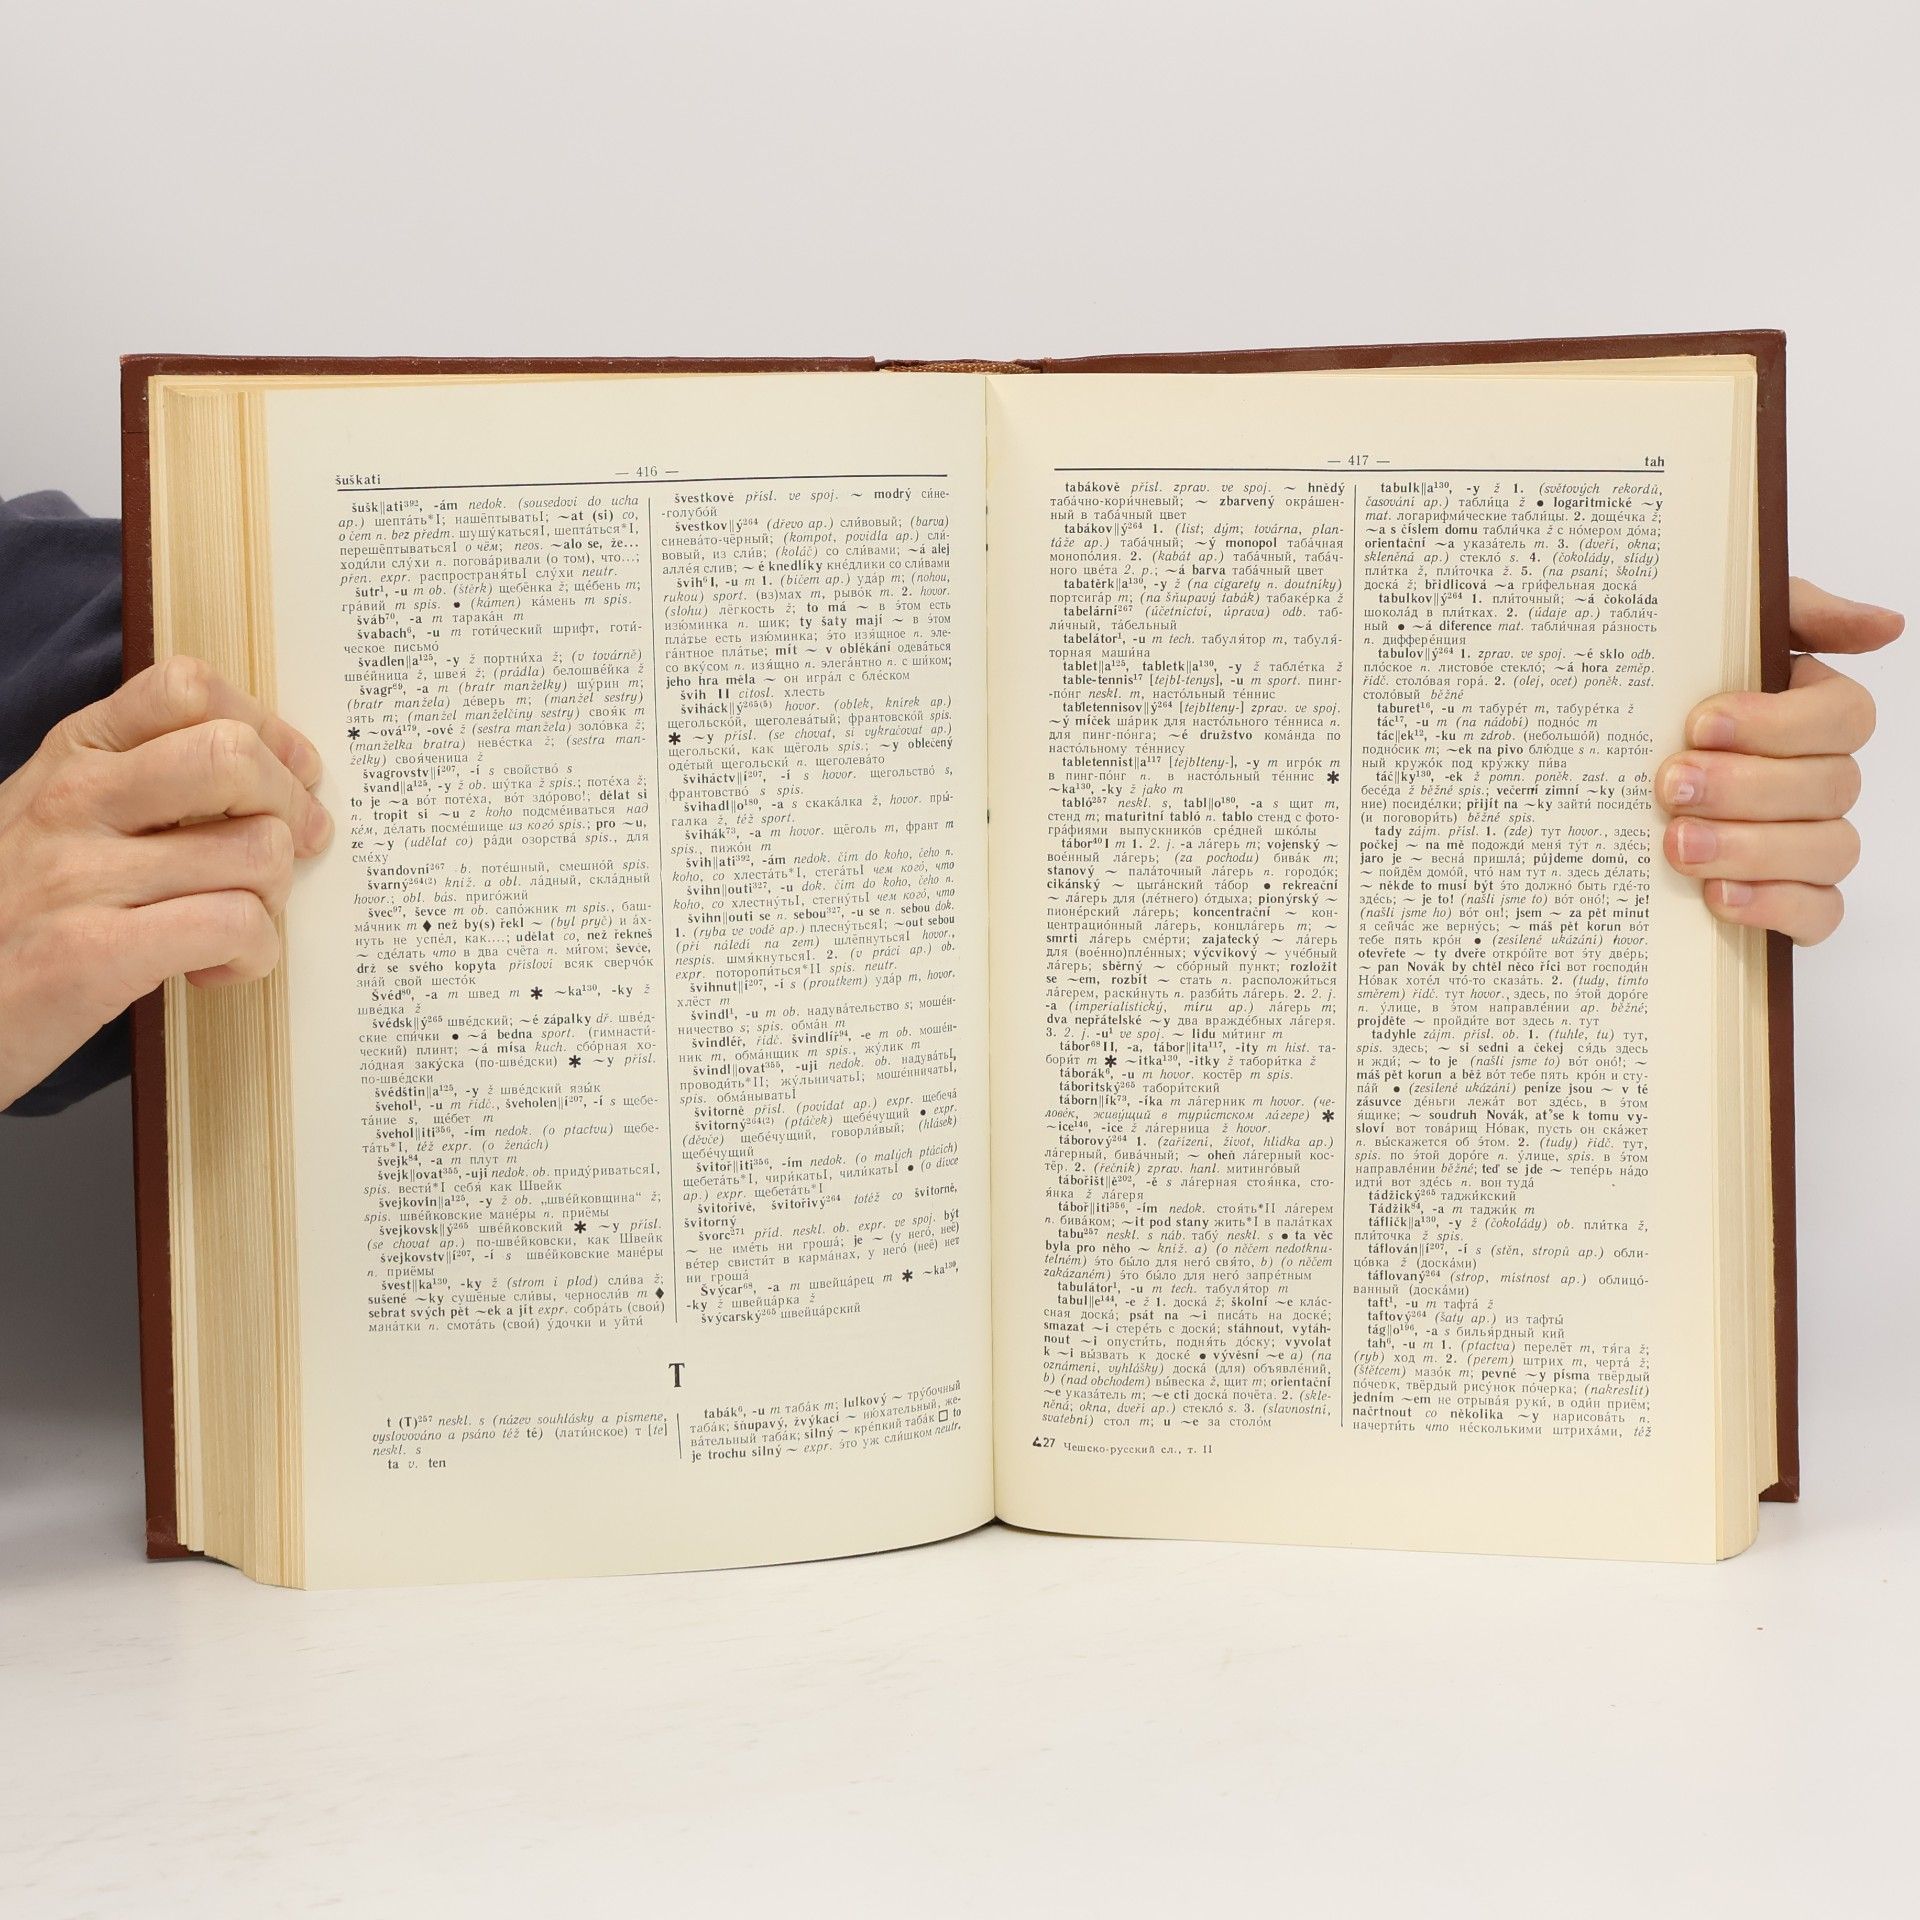 šuškati
— 416 —
šušk||ati³⁹², -ám nedok. (sousedovi do ucha
ap.) шепта́ть*I; нашёптыватьI; ~at (si) co,
o čem n. bez předm. шушу́катьсяI, шепта́ться*I,
перешёптыватьсяI о чём; neos. ~alo se, že...
ходи́ли слу́хи n. погова́ривали (о том), что...;
přen. expr. распространя́тьI слу́хи neutr.
šutr¹, -u m ob. (štěrk) щебёнка ž; ще́бень m;
гра́вий m spis. ● (kámen) ка́мень m spis.
šváb⁷⁰, -a m тарака́н m
švabach⁶, -u m готи́ческий шрифт, готи́-
ческое письмо́
švadlen||a¹²⁵, -y ž портни́ха ž; (v továrně)
шве́йница ž, швея́ ž; (prádla) белошве́йка ž
švagr⁶⁹, -a m (bratr manželky) шу́рин m;
(bratr manžela) де́верь m; (manžel sestry)
зять m; (manžel manželčiny sestry) своя́к m
✱ ~ová¹⁷⁹, -ové ž (sestra manžela) золо́вка ž;
(manželka bratra) неве́стка ž; (sestra man-
želky) своя́ченица ž
švagrovstv||í²⁰⁷, -í s свойство́ s
švand||a¹²⁵, -y ž ob. шу́тка ž spis.; поте́ха ž;
to je ~a во́т поте́ха, во́т здо́рово!; dělat si
n. tropit si ~u z koho подсме́иваться над
ке́м, де́лать посме́шище из кого́ spis.; pro ~u,
ze ~y (udělat co) ра́ди озорства́ spis., для
сме́ху
švandovní²⁶⁷ b. поте́шный, смешно́й spis.
švarný²⁶⁴⁽²⁾ kniž. a obl. ла́дный, скла́дный
hovor.; obl. bás. приго́жий
švec⁹⁷, ševce m ob. сапо́жник m spis., баш-
ма́чник m ♦ než by(s) řekl ~ (byl pryč) и а́х-
нуть не успе́л, как....; udělat co, než řekneš
~ сде́лать что в два счёта n. ми́гом; ševče,
drž se svého kopyta přísloví всяк сверчо́к
зна́й сво́й шесто́к
Švéd⁸⁰, -a m швед m ✱ ~ka¹³⁰, -ky ž
шве́дка ž
švédsk||ý²⁶⁵ шве́дский; ~é zápalky dř. шве́д-
ские спи́чки ● ~á bedna sport. (гимнасти́-
ческий) плинт; ~á mísa kuch. сбо́рная хо-
ло́дная заку́ска (по-шве́дски) ✱ ~y přísl.
по-шве́дски
švédštin||a¹²⁵, -y ž шве́дский язы́к
švehol¹, -u m řidč., šveholen||í²⁰⁷, -í s щебе-
та́ние s, ще́бет m
švehol||iti³⁵⁶, -ím nedok. (o ptactvu) щебе-
та́ть*I, též expr. (o ženách)
švejk⁸⁴, -a m плут m
švejk||ovat³⁵⁵, -uji nedok. ob. приду́риватьсяI,
spis. вести́*I себя́ как Швейк
švejkovin||a¹²⁵, -y ž ob. „шве́йковщина“ ž;
spis. шве́йковские мане́ры n. приёмы
švejkovsk||ý²⁶⁵ шве́йковский ✱ ~y přísl.
(se chovat ap.) по-шве́йковски, как Швейк
švejkovstv||í²⁰⁷, -í s шве́йковские мане́ры
n. приёмы
švest||ka¹³⁰, -ky ž (strom i plod) сли́ва ž;
sušené ~ky сушёные сли́вы, черносли́в m ♦
sebrat svých pět ~ek a jít expr. собра́ть (свои́)
мана́тки n. смота́ть (свои́) у́дочки и уйти́
švestkově přísl. ve spoj. ~ modrý си́не-
-голубо́й
švestkov||ý²⁶⁴ (dřevo ap.) сли́вовый; (barva)
синева́то-чёрный; (kompot, povidla ap.) сли́-
вовый, из сли́в; (koláč) со сли́вами; ~á alej
алле́я слив; ~é knedlíky кне́длики со сли́вами
švih⁶ I, -u m 1. (bičem ap.) уда́р m; (nohou,
rukou) sport. (вз)мах m, рыво́к m. 2. hovor.
(slohu) лёгкость ž; to má ~ в э́том есть
изю́минка n. шик; ty šaty mají ~ в э́том
пла́тье есть изю́минка; э́то изя́щное n. эле-
га́нтное пла́тье; mít ~ v oblékání одева́ться
со вку́сом n. изя́щно n. элега́нтно n. с ши́ком;
jeho hra měla ~ он игра́л с бле́ском
švih II citosl. хлесть
švihack||ý²⁶⁵⁽⁵⁾ hovor. (oblek, knírek ap.)
щегольско́й, щеголева́тый; франтовско́й spis.
✱ ~y přísl. (se chovat, si vykračovat ap.)
щегольски́, как щёголь spis.; ~y oblečený
оде́тый щегольски́ n. щеголева́то
šviháctv||í²⁰⁷, -í s hovor. щегольство́ s,
франтовство́ s spis.
švihadl||o¹⁸⁰, -a s скака́лка ž, hovor. пры-
га́лка ž, též sport.
švihák⁷³, -a m hovor. щёголь m, франт m
spis., пижо́н m
švih||ati³⁹², -ám nedok. čím do koho, čeho n.
koho, co хлеста́ть*I, стега́тьI чем кого́, что
švihn||outi³²⁷, -u dok. čím do koho, čeho n.
koho, co хлестну́тьI, стегну́тьI чем кого́, что
švihn||outi se n. sebou³²⁷, -u se n. sebou dok.
1. (ryba ve vodě ap.) плесну́тьсяI; ~out sebou
(při náledí na zem) шлёпнутьсяI hovor.,
nespis. шмя́кнутьсяI. 2. (v práci ap.) ob.
expr. поторопи́ться*II spis. neutr.
švihnut||í²⁰⁷, -í s (proutkem) уда́р m, hovor.
хлёст m
švindl¹, -u m ob. надува́тельство s; моше́н-
ничество s; spis. обма́н m
švindléř, řidč. švindlíř⁹⁴, -e m ob. моше́н-
ник m, обма́нщик m spis., жу́лик m
švindl||ovat³⁵⁵, -uji nedok. ob. надува́тьI,
проводи́ть*II; жу́льничатьI; моше́нничатьI,
spis. обма́ныватьI
švitorně přísl. (povídat ap.) expr. щебеча́
švitorný²⁶⁴⁽²⁾ (ptáček) щебе́чущий ● expr.
(děvče) щебе́чущий, говорли́вый; (hlásek)
щебе́чущий
švitoř||iti³⁵⁶, -ím nedok. (o malých ptácích)
щебета́ть*I, чири́катьI, чили́катьI ● (o dívce
ap.) expr. щебета́ть*I
švitořivě, švitořivý²⁶⁴ totéž co švitorně,
švitorný
švorc²⁷¹ příd. neskl. ob. expr. ve spoj. být
~ не име́ть ни гроша́; je ~ (у него́, неё)
ве́тер свисти́т в карма́нах, у него́ (неё) нет
ни гроша́
Švýcar⁶⁸, -a m швейца́рец m ✱ ~ka¹³⁰,
-ky ž швейца́рка ž
švýcarský²⁶⁵ швейца́рский
T
t (T)²⁵⁷ neskl. s (název souhlásky a písmene,
vyslovováno a psáno též té) (лати́нское) т [te]
neskl. s
ta v. ten
tabák⁶, -u m таба́к m; lulkový ~ тру́бочный
таба́к; šňupavý, žvýkací ~ ню́хательный, же-
ва́тельный таба́к; silný ~ кре́пкий таба́к □ to
je trochu silný ~ expr. э́то уж сли́шком neutr.
— 417 —
tah
tabákově přísl. zprav. ve spoj. ~ hnědý
таба́чно-кори́чневый; ~ zbarvený окра́шен-
ный в таба́чный цвет
tabákov||ý²⁶⁴ 1. (list; dým; továrna, plan-
táže ap.) таба́чный; ~ý monopol таба́чная
монопо́лия. 2. (kabát ap.) таба́чный, таба́ч-
ного цве́та 2. p.; ~á barva таба́чный цвет
tabatěrk||a¹³⁰, -y ž (na cigarety n. doutníky)
портсига́р m; (na šňupavý tabák) табаке́рка ž
tabelární²⁶⁷ (účetnictví, úprava) odb. таб-
ли́чный, та́бельный
tabelátor¹, -u m tech. табуля́тор m, табуля-
то́рная маши́на
tablet||a¹²⁵, tabletk||a¹³⁰, -y ž табле́тка ž
table-tennis¹⁷ [tejbl-tenys], -u m sport. пинг-
-по́нг neskl. m, насто́льный те́ннис
tabletennisov||ý²⁶⁴ [tejblteny-] zprav. ve spoj.
~ý míček ша́рик для насто́льного те́нниса n.
для пинг-по́нга; ~é družstvo кома́нда по
насто́льному те́ннису
tabletennist||a¹¹⁷ [tejblteny-], -y m игро́к m
в пинг-по́нг n. в насто́льный те́ннис ✱
~ka¹³⁰, -ky ž jako m
tabló²⁵⁷ neskl. s, tabl||o¹⁸⁰, -a s щит m,
стенд m; maturitní tabló n. tablo стенд с фото-
гра́фиями выпускнико́в сре́дней шко́лы
tábor⁴⁰ I m 1. 2. j. -a ла́герь m; vojenský ~
вое́нный ла́герь; (za pochodu) бива́к m;
stanový ~ пала́точный ла́герь n. городо́к;
cikánský ~ цыга́нский та́бор ● rekreační
~ ла́герь для (ле́тнего) о́тдыха; pionýrský ~
пионе́рский ла́герь; koncentrační ~ кон-
центрацио́нный ла́герь, концла́герь m; ~
smrti ла́герь сме́рти; zajatecký ~ ла́герь
для (вое́нно)пле́нных; výcvikový ~ уче́бный
ла́герь; sběrný ~ сбо́рный пункт; rozložit
se ~em, rozbít ~ стать n. расположи́ться
ла́герем, раски́нуть n. разби́ть ла́герь. 2. 2. j.
-a (imperialistický, míru ap.) ла́герь m;
dva nepřátelské ~y два вражде́бных ла́геря.
3. 2. j. -u¹ ve spoj. ~ lidu ми́тинг m
tábor⁶⁸ II, -a, tábor||ita¹¹⁷, -ity m hist. та-
бори́т m ✱ ~itka¹³⁰, -itky ž табори́тка ž
táborák⁶, -u m hovor. костёр m spis.
táboritský²⁶⁵ табори́тский
táborn||ík⁷³, -íka m ла́герник m hovor. (че-
лове́к, живу́щий в тури́стском ла́гере) ✱
~ice¹⁴⁶, -ice ž ла́герница ž hovor.
táborový²⁶⁴ 1. (zařízení, život, hlídka ap.)
ла́герный, бива́чный; ~ oheň ла́герный кос-
тёр. 2. (řečník) zprav. hanl. ми́тинговый
tábořišt||ě²⁰², -ě s ла́герная стоя́нка, сто-
я́нка ž ла́геря
táboř||iti³⁵⁶, -ím nedok. стоя́ть*II ла́герем
n. бива́ком; ~it pod stany жить*I в пала́тках
tabu²⁵⁷ neskl. s náb. табу́ neskl. s ● ta věc
byla pro něho ~ kniž. a) (o něčem nedotknu-
telném) э́то бы́ло для него́ свя́то, b) (o něčem
zakázaném) э́то бы́ло для него́ запре́тным
tabulátor¹, -u m tech. табуля́тор m
tabul||e¹⁴⁴, -e ž 1. доска́ ž; školní ~e кла́с-
сная доска́; psát na ~i писа́ть на доске́;
smazat ~i стере́ть с доски́; stáhnout, vytáh-
nout ~i опусти́ть, подня́ть до́ску; vyvolat
k ~i вы́звать к доске́ ● vývěsní ~e a) (na
oznámení, vyhlášky) доска́ (для) объявле́ний,
b) (nad obchodem) вы́веска ž, щит m; orientační
~e указа́тель m; ~e cti доска́ почёта. 2. (skle-
něná; okna, dveří ap.) стекло́ s. 3. (slavnostní,
svatební) стол m; u ~e за столо́м
tabulk||a¹³⁰, -y ž 1. (světových rekordů,
časování ap.) табли́ца ž ● logaritmické ~y
mat. логарифми́ческие табли́цы. 2. доще́чка ž;
~a s číslem domu табли́чка ž с но́мером до́ма;
orientační ~a указа́тель m. 3. (dveří, okna;
skleněná ap.) стекло́ s. 4. (čokolády, slídy)
пли́тка ž, пли́точка ž. 5. (na psaní; školní)
доска́ ž; břidlicová ~a гри́фельная доска́
tabulkov||ý²⁶⁴ 1. пли́точный; ~á čokoláda
шокола́д в пли́тках. 2. (údaje ap.) табли́ч-
ный ● ~á diference mat. табли́чная ра́зность
n. диффере́нция
tabulov||ý²⁶⁴ 1. zprav. ve spoj. ~é sklo odb.
пло́ское n. листово́е стекло́; ~á hora zeměp.
řidč. столо́вая гора́. 2. (olej, ocet) poněk. zast.
столо́вый běžné
taburet¹⁶, -u m табуре́т m, табуре́тка ž
tác¹⁷, -u m (na nádobí) подно́с m
tác||ek¹², -ku m zdrob. (небольшо́й) подно́с,
подно́сик m; ~ek na pivo блю́дце s n. карто́н-
ный кружо́к под кру́жку пи́ва
táč||ky¹³⁰, -ek ž pomn. poněk. zast. a ob.
бесе́да ž běžné spis.; večerní zimní ~ky (зи́м-
ние) посиде́лки; přijít na ~ky зайти́ посиде́ть
(и поговори́ть) běžné spis.
tady zájm. přísl. 1. (zde) тут hovor., здесь;
počkej ~ na mě подожди́ меня́ ту́т n. здесь;
jaro je ~ весна́ пришла́; půjdeme domů, co
~ пойдём домо́й, что́ нам ту́т n. здесь де́лать;
~ někde to musí být э́то должно́ быть где́-то
здесь; ~ je to! (našli jsme to) во́т оно́!; ~ je!
(našli jsme ho) во́т он!; jsem ~ za pět minut
я сейча́с же верну́сь; ~ máš pět korun во́т
тебе́ пять кро́н ● (zesílené ukázání) hovor.
otevřete ~ ty dveře откро́йте вот э́ту две́рь;
~ pan Novák by chtěl něco říci вот господи́н
Но́вак хоте́л что́-то сказа́ть. 2. (tudy, tímto
směrem) řidč. тут hovor., здесь, по э́той доро́ге
n. у́лице, в э́том направле́нии ap. běžné;
projděte ~ пройди́те вот здесь n. тут
tadyhle zájm. přísl. ob. 1. (tuhle, tu) тут,
spis. здесь; ~ si sedni a čekej ся́дь здесь
и жди́; ~ to je (našli jsme to) во́т оно́!; ~
máš pět korun a běž во́т тебе́ пять кро́н и сту-
па́й ● (zesílené ukázání) peníze jsou ~ v té
zásuvce де́ньги лежа́т вот зде́сь, в э́том
я́щике; ~ soudruh Novák, ať se k tomu vy-
sloví вот това́рищ Но́вак, пусть он ска́жет
n. вы́скажется об э́том. 2. (tudy) řidč. тут,
spis. по э́той доро́ге n. у́лице, spis. в э́том
направле́нии běžné; teď se jde ~ тепе́рь на́до
идти́ вот здесь n. вон туда́
tádžický²⁶⁵ таджи́кский
Tádžik⁸⁴, -a m таджи́к m
táfličk||a¹³⁰, -y ž (čokolády) ob. пли́тка ž,
пли́точка ž spis.
táflován||í²⁰⁷, -í s (stěn, stropů ap.) обли-
цо́вка ž (доска́ми)
táflovaný²⁶⁴ (strop, místnost ap.) облицо́-
ванный (доска́ми)
taft¹, -u m тафта́ ž
taftový²⁶⁴ (šaty ap.) из тафты́
tág||o¹⁹⁶, -a s билья́рдный кий
tah⁶, -u m 1. (ptactva) перелёт m, тя́га ž;
(ryb) ход m. 2. (perem) штрих m, черта́ ž;
(štětcem) мазо́к m; pevné ~y písma твёрдый
по́черк, твёрдый рису́нок по́черка; (nakreslit)
jedním ~em не отрыва́я руки́, в оди́н приём;
načrtnout co několika ~y нарисова́ть n.
начерти́ть что не́сколькими штриха́ми, též
27 Чешско-русский сл., т. II